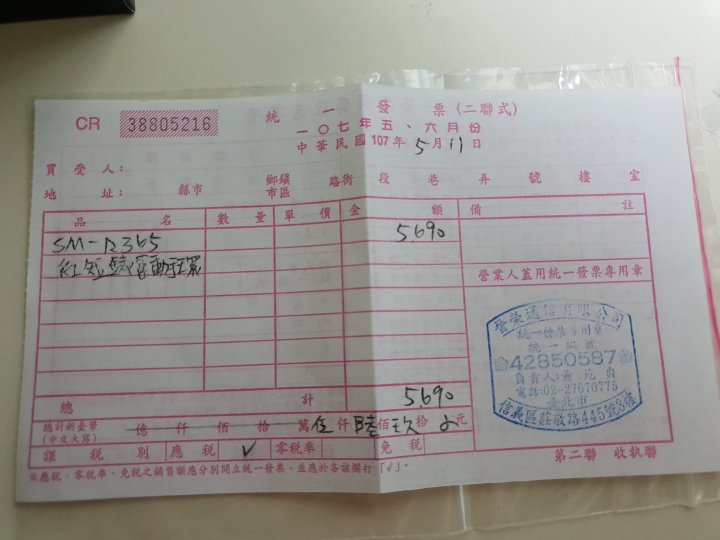 CR 38805216
統一發票(二聯式)
一〇七年五、六月份
中華民國107年5月11日
買受人:
地址: 縣市 鄉鎮市區 路街 段 巷 弄 號 樓 室
品名 數量 單價 金額 備註
SM-R365 5690
營業人蓋用統一發票專用章
統一發票專用章
統一編號
42850587
電話:02-27670775
臺北市
信義區莊敬路445號3樓
總計 5690
總計新台幣(中文大寫) 億 仟 佰 拾 萬伍仟陸佰玖拾 元
課稅別 應稅 ✓ 零稅率 免稅
※應稅、零稅率、免稅之銷售額應分別開立統一發票,並應於各該欄打「✓」。
第二聯 收執聯